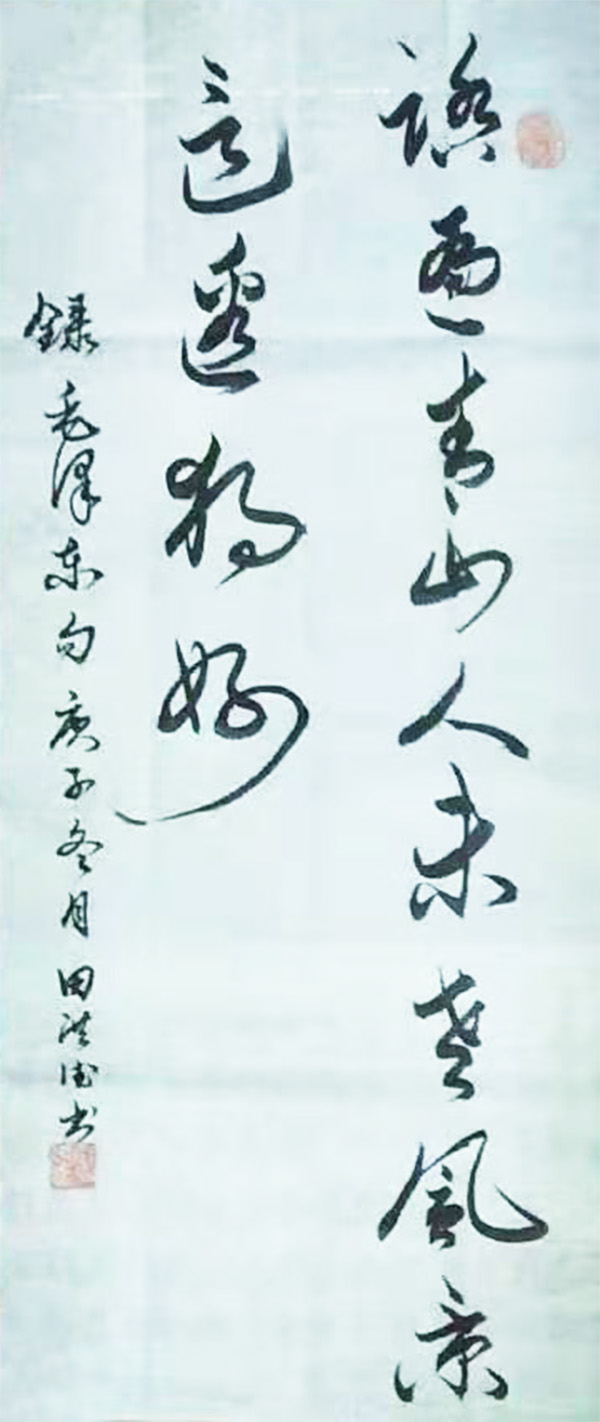 踏遍青山人未老風景
這邊独好
録毛泽东句庚子冬月田洪德书